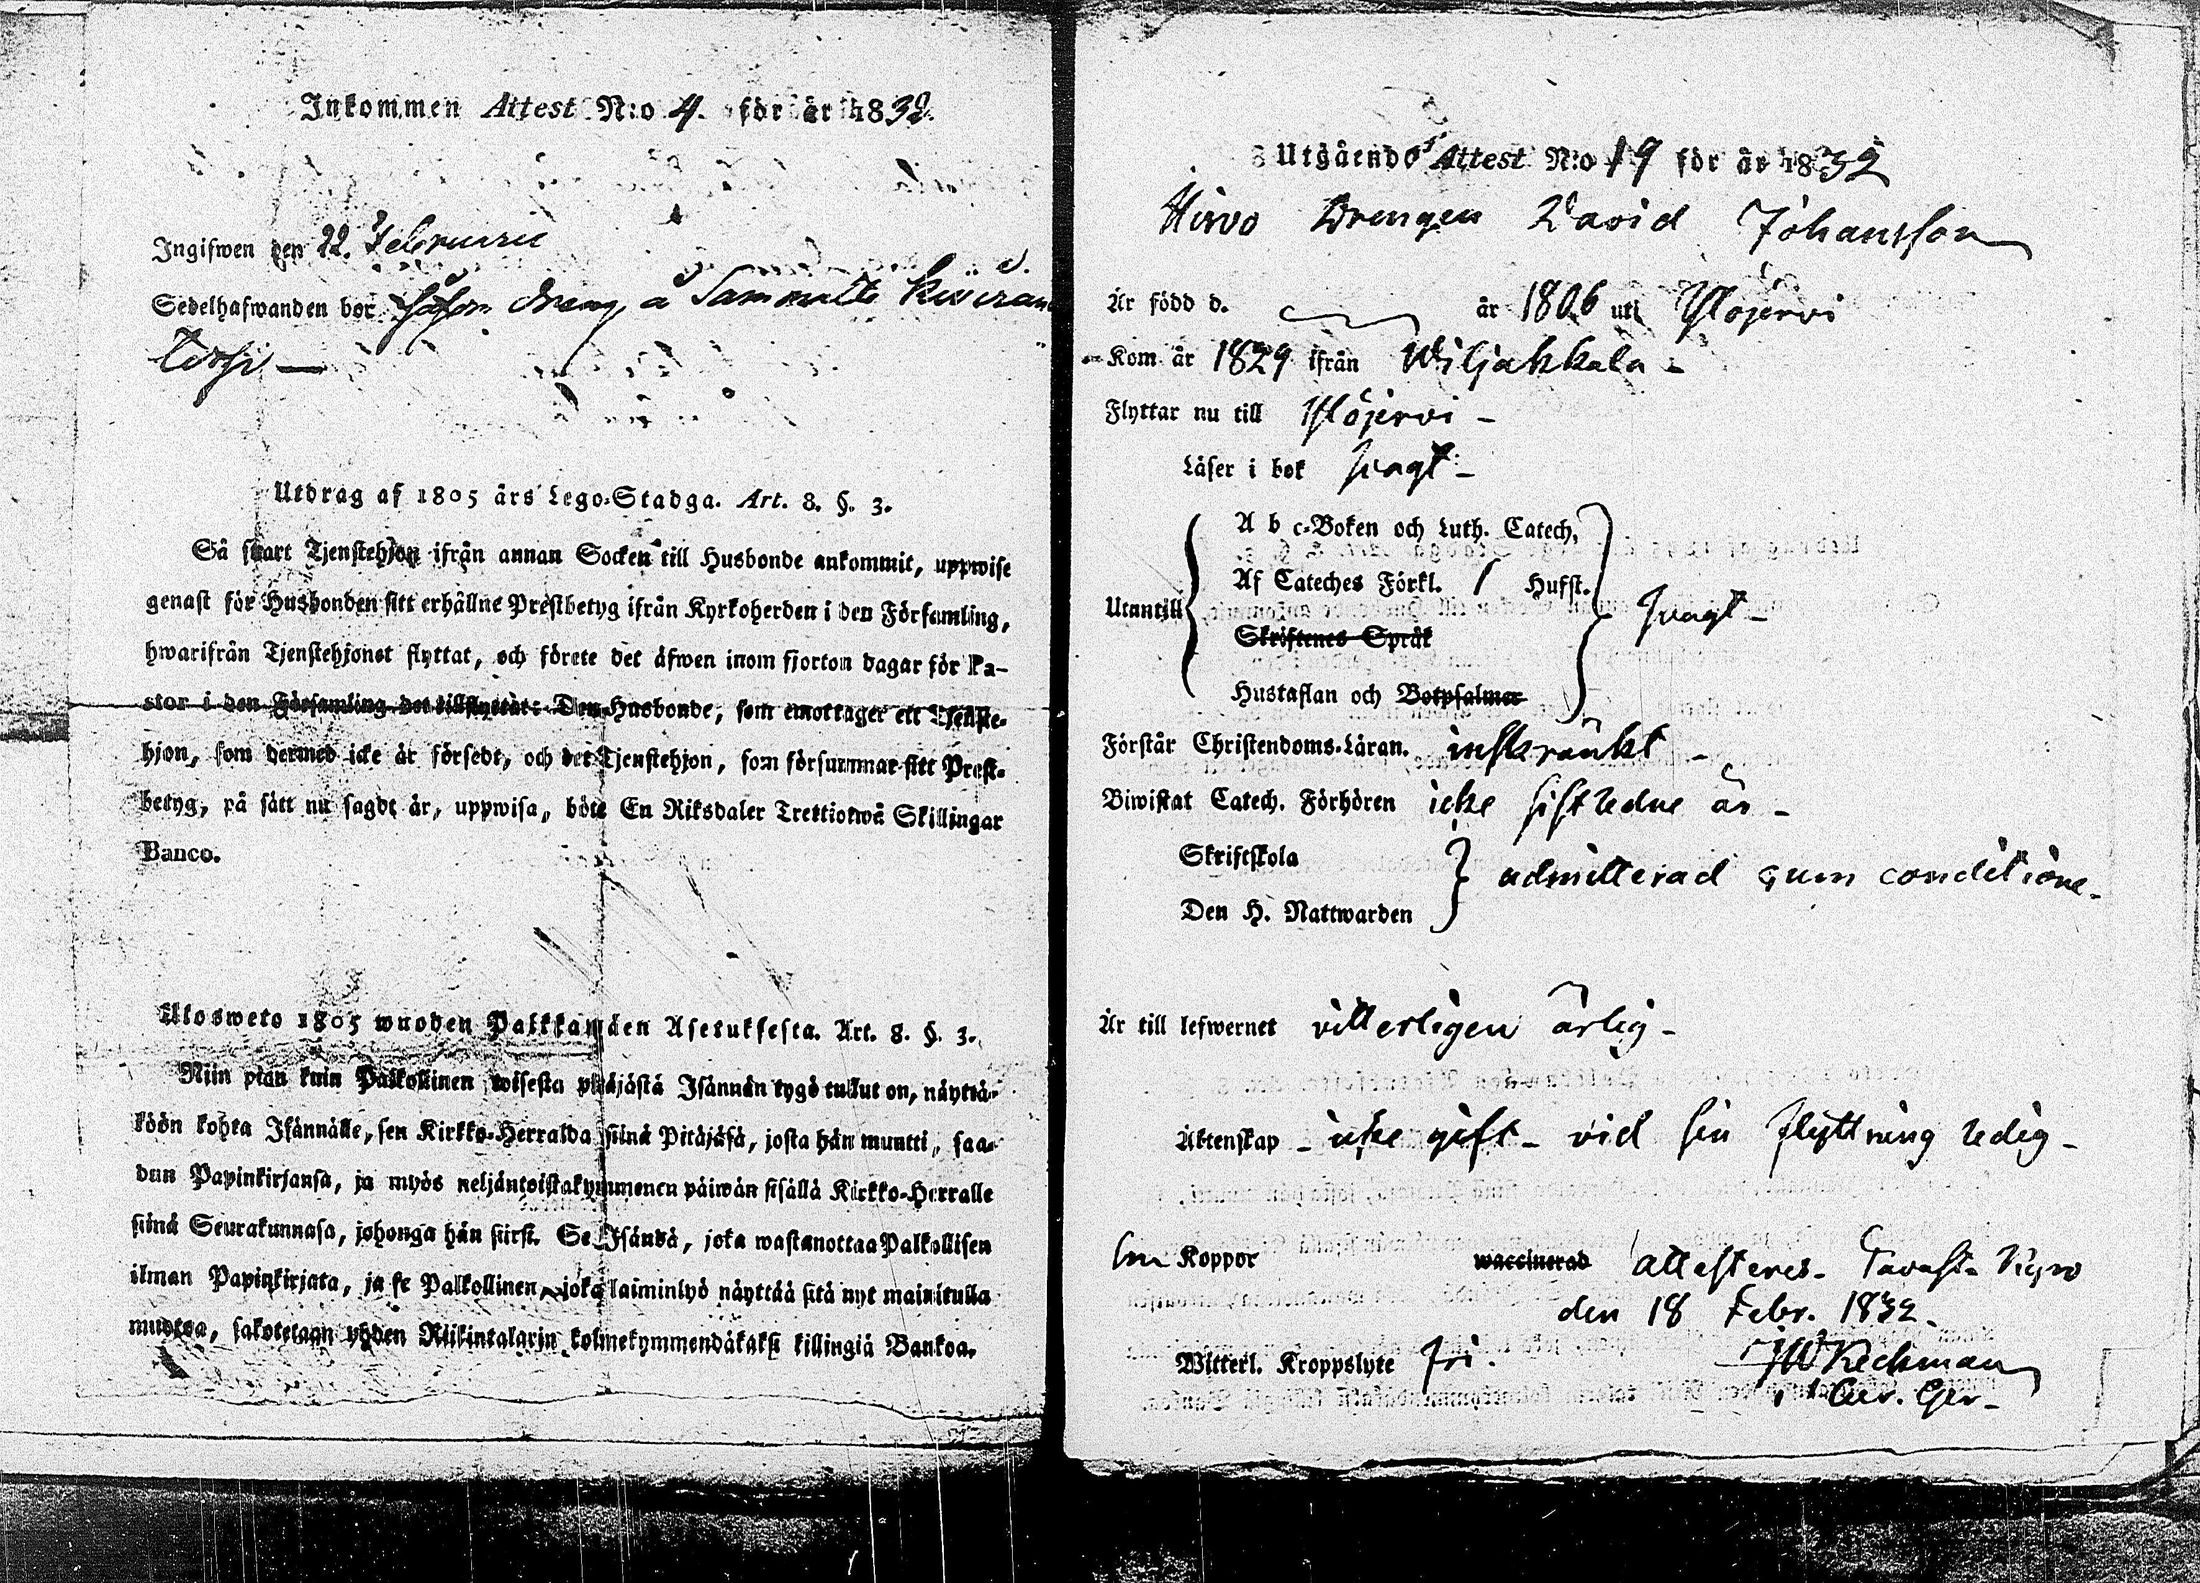 Inkommen Attest N:o 4. för år 1832.
Ingifwen den 22. Februarii
Sedelhafwanden bor såsom dräng å Sammatti
Utdrag af 1805 års Lego-Stadga. Art. 8. §. 3.
Så snart Tjenstehjon ifrån annan Socken till Husbonde ankommit, uppwise
genast för Husbonden sitt erhållne Prestbetyg ifrån Kyrkoherden i den Församling,
hwarifrån Tjenstehjonet flyttat, och förete det äfwen inom fjorton dagar för Pa-
stor i den Församling det tillflyttat: Den Husbonde, som emottager ett Tjenste-
hjon, som dermed icke är försedt, och det Tjenstehjon, som försummar sitt Prest-
betyg, på sätt nu sagdt är, uppwisa, böte En Riksdaler Trettiotwå Skillingar
Banco.
Ulosweto 1805 wuoden Palkkawäen Asetuksesta. Art. 8. §. 3.
Niin pian kuin Palkollinen toisesta pitäjästä Isännän tygö tullut on, näyttä-
köön kohta Isännälle, sen Kirkko-Herralda siinä Pitäjäsä, josta hän muutti, saa-
dun Papinkirjansa, ja myös neljäntoistakymmenen päiwän sisällä Kirkko-Herralle
siinä Seurakunnasa, johonga hän siirsi. Se Isändä, joka wastanottaa Palkollisen
ilman Papinkirjata, ja se Palkollinen, joka laiminlyö näyttää sitä nyt mainitulla
muotoa, sakotetaan yhden Riikintalarin kolmekymmendäkaksi killingiä Bankoa.
Utgående Attest N:o 19 för år 1832
Drengen David Johansson
Är född d. år 1806 uti Ylöjervi
Kom år 1829 ifrån Wiljakkala -
Flyttar nu till Ylöjervi -
Läser i bok svagt -
A b c-Boken och Luth. Catech,
Af Cateches Förkl. / Hufst.
Utantill svagt -
Skriftenes Språk
Hustaflan och Botpsalmer
Förstår Christendoms-Läran. inskränkt -
Biwistat Catech. Förhören icke sistledne år -
Skriftskola
admitterad cum conditione -
Den H. Nattwarden
Är till lefwernet vitterligen ärlig -
Äktenskap - icke gift - vid sin flyttning ledig -
Koppor waccinerad attesteres - Tavast-Kyro
den 18 Febr. 1832.
Witterl. Kroppslyte fri.